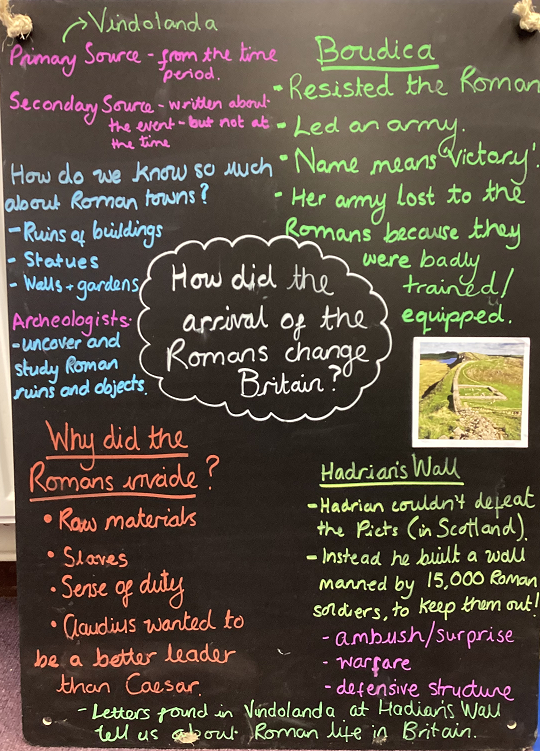 Vindolanda
Primary Source - from the time
period.
Secondary Source - written about
the event - but not at
the time
How do we know so much
about Roman towns?
- Ruins of buildings
- Statues
- Walls + gardens
Archeologists:
- uncover and
study Roman
ruins and objects.
Boudica
- Resisted the Roman
- Led an army.
- Name means 'victory'.
- Her army lost to the
Romans because they
were badly
trained/
equipped.
How did the
arrival of the
Romans change
Britain?
Why did the
Romans invade?
• Raw materials
• Slaves
• Sense of duty
• Claudius wanted to
be a better leader
than Caesar.
Hadrian's Wall
- Hadrian couldn't defeat
the Picts (in Scotland).
- Instead he built a wall
manned by 15,000 Roman
soldiers, to keep them out!
- ambush/surprise
- warfare
- defensive structure
- Letters found in Vindolanda at Hadian's Wall
tell us about Roman life in Britain.